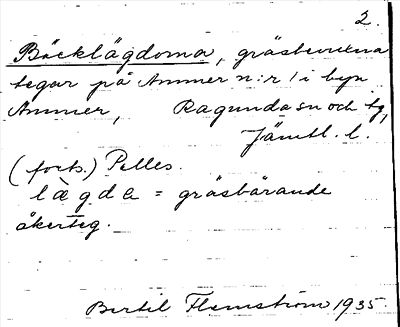 2.
Bäcklägdorna, gräsbevuxna
tegar på Ammer n:r 1 i byn
Ammer, Ragunda sn och tg,
Jämtl. l.
(forts.) Pelles.
lägde = gräsbärande
åkerteg.
Bertil Flemström 1935.